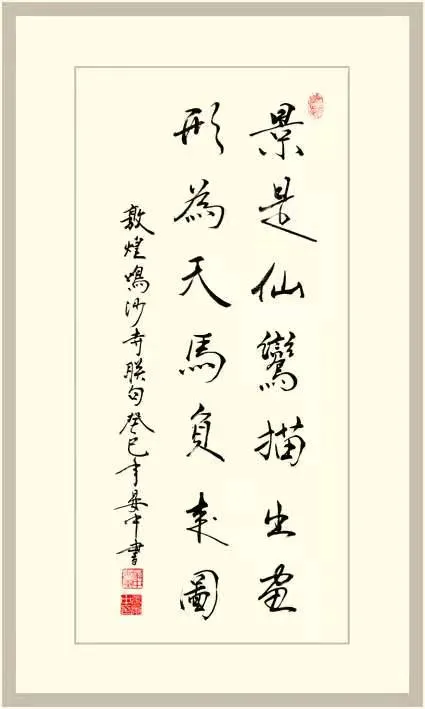 景是仙鸞描出画
形為天馬負来圖
敦煌鳴沙寺联句癸巳年晏中書